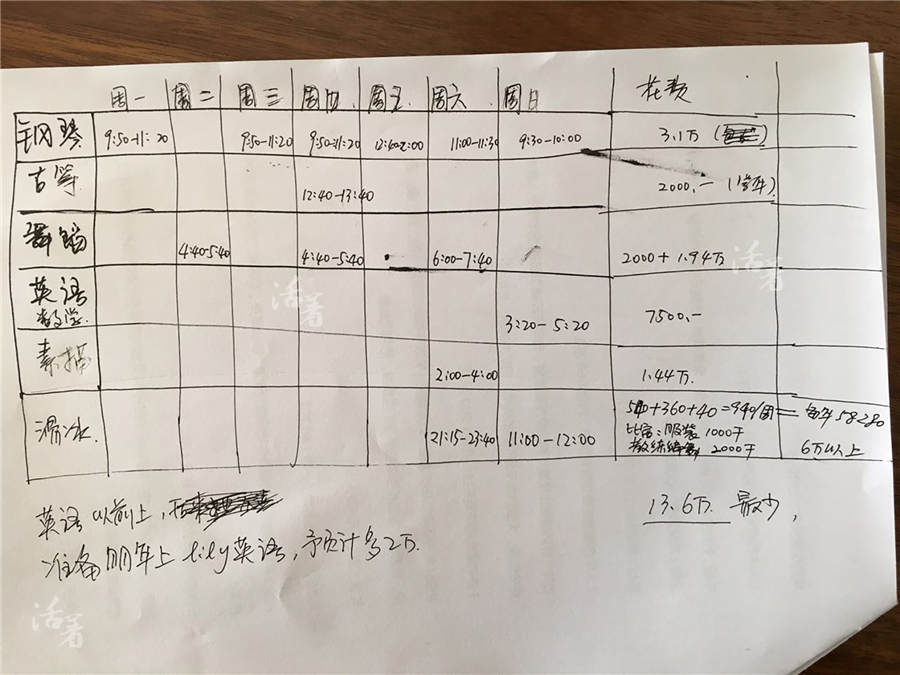 周一 周二 周三 周四 周五 周六 周日 花费
钢琴 9:50-11:20 9:50-11:20 9:50-11:20 12:40-2:00 11:00-11:30 9:30-10:00 3.1万
古筝 12:40-13:40 2000.- (学年)
舞蹈 4:40-5:40 4:40-5:40 6:00-7:40 2000+1.94万
英语
数学 3:20-5:20 7500.-
素描 2:00-4:00 1.44万.
滑冰. 21:15-23:40 11:00-12:00 540+360+40=940/周= 每年58280
比赛:服装 1000千
教练 2000千 6万以上
英语以前上,
13.6万 最少,
准备明年上lily英语,预计多2万.
活着
活着
活着